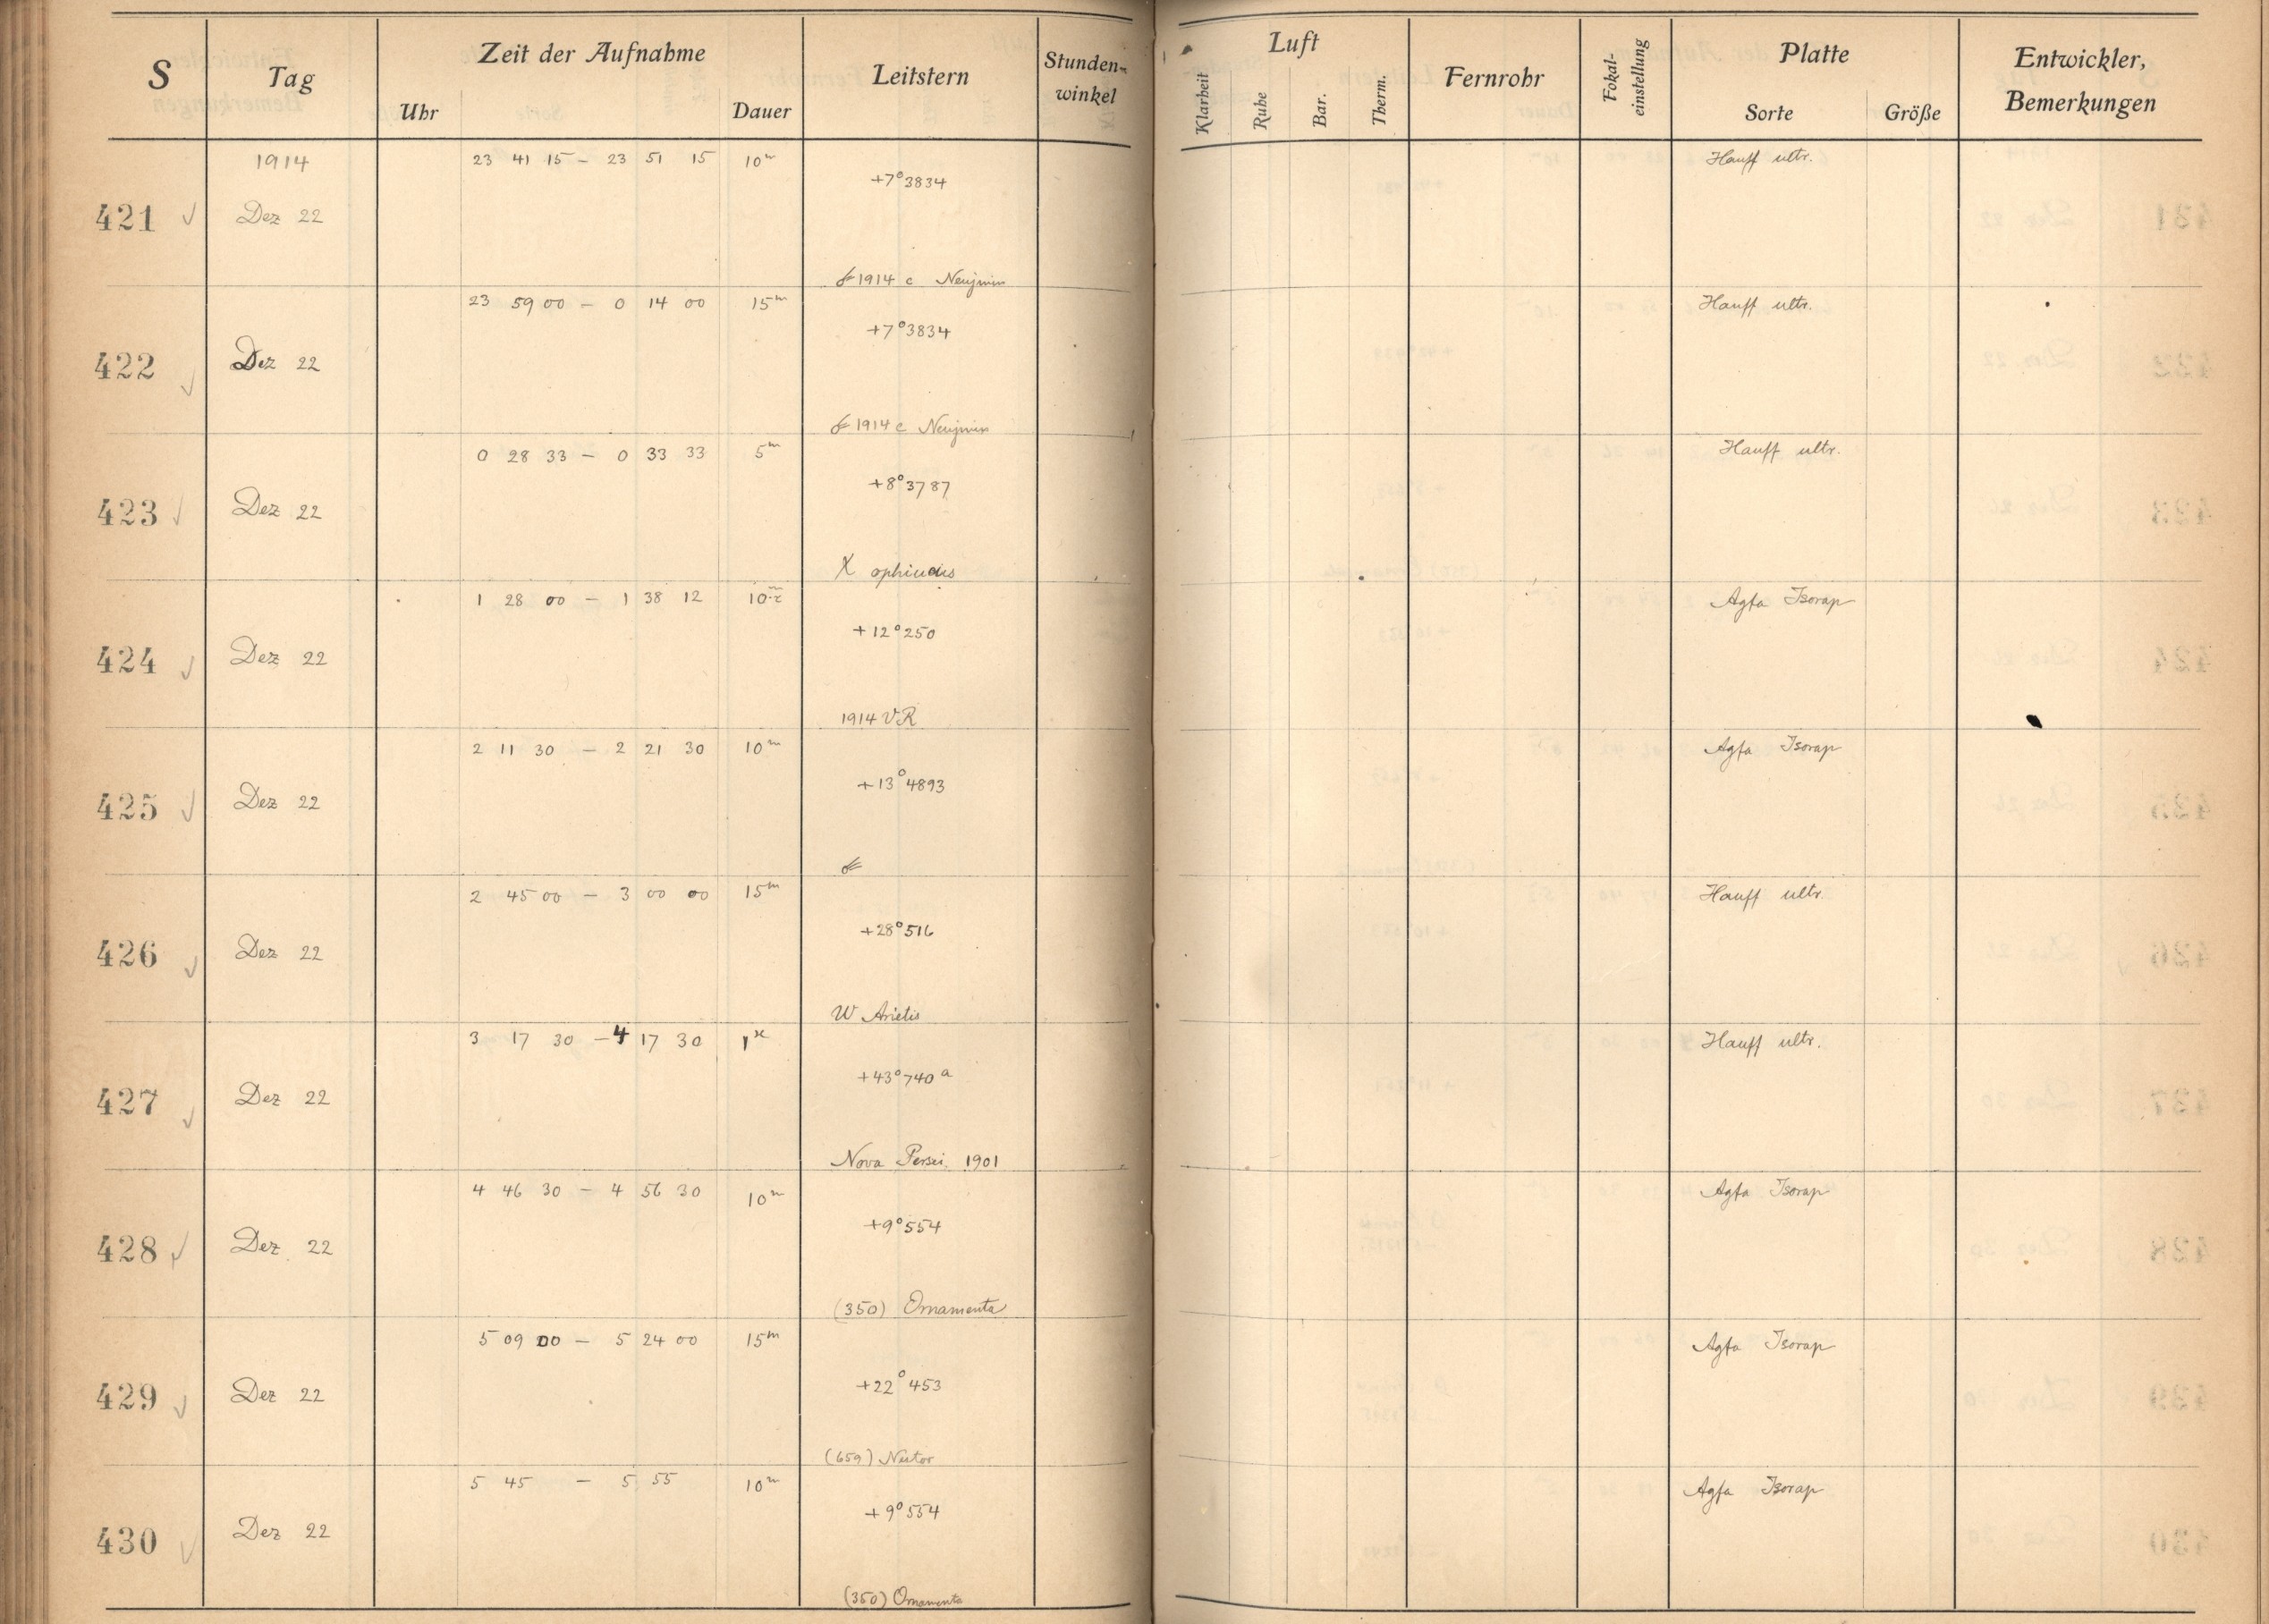 S Tag Zeit der Aufnahme Leitstern Stunden-winkel Luft Fernrohr Fokal-einstellung Platte Entwickler, Bemerkungen
Uhr Dauer Klarheit Ruhe Bar. Therm. Sorte Größe
1914 23 41 15 - 23 51 15 10m Hauff ultr.
+7°3834
421 Dez 22
☄ 1914 c Neujmin
23 59 00 - 0 14 00 15m Hauff ultr.
+7°3834
422 Dez 22
☄ 1914 c Neujmin
0 28 33 - 0 33 33 5m Hauff ultr.
+8°3787
423 Dez 22
X ophiuchis
1 28 00 - 1 38 12 10m.2 Agfa Isorap
+12°250
424 Dez 22
1914 VR
2 11 30 - 2 21 30 10m Agfa Isorap
+13°4893
425 Dez 22
☄
2 45 00 - 3 00 00 15m Hauff ultr.
+28°516
426 Dez 22
W Arietis
3 17 30 - 4 17 30 1h Hauff ultr.
+43°740a
427 Dez 22
Nova Persei 1901
4 46 30 - 4 56 30 10m Agfa Isorap
+9°554
428 Dez 22
(350) Ornamenta
5 09 00 - 5 24 00 15m Agfa Isorap
+22°453
429 Dez 22
(659) Nestor
5 45 - 5 55 10m Agfa Isorap
+9°554
430 Dez 22
(350) Ornamenta